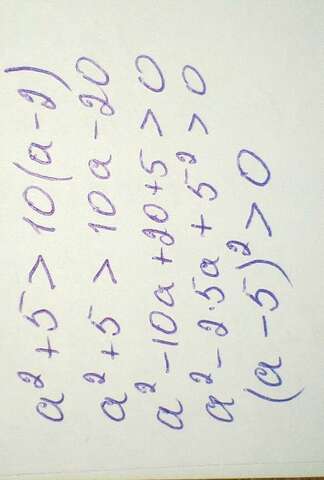 a² + 5 > 10(a - 2)
a² + 5 > 10a - 20
a² - 10a + 20 + 5 > 0
a² - 2·5a + 5² > 0
(a - 5)² > 0